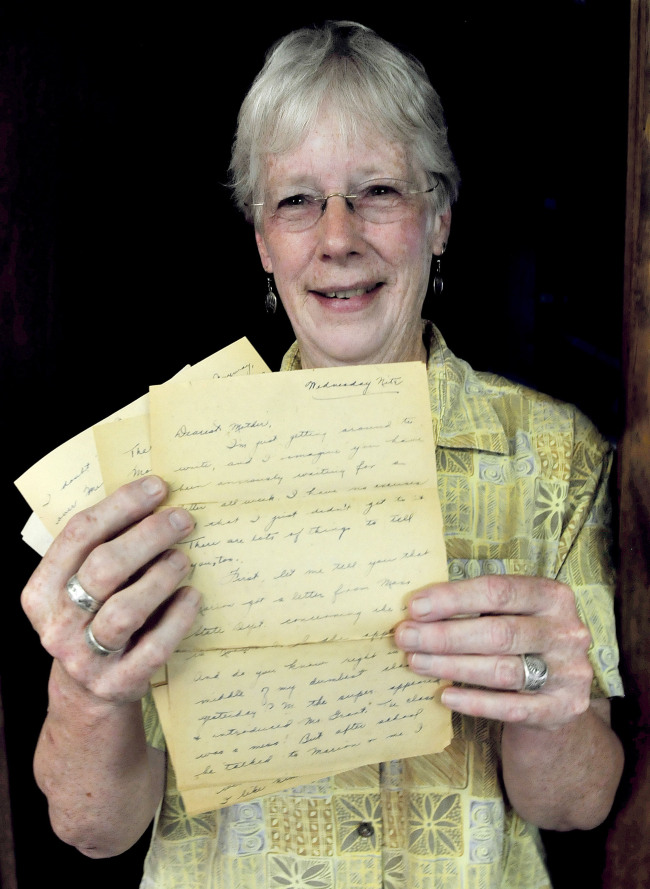 Wednesday Nite
Dearest Mother,
I'm just getting around to
write, and I imagine you have
been anxiously waiting for a
letter all week. I have no excuses
that I just didn't get to it
There are lots of things to tell
you, too.
First, let me tell you that
Marion got a letter from Mass
State Dept concerning the
she
And do you know right
middle of my dumbest class
yesterday P.M. the super. appeared
& introduced Mr. Grant. The class
was a mess! But after school
he talked to Marion & me &
I like
I doubt
The